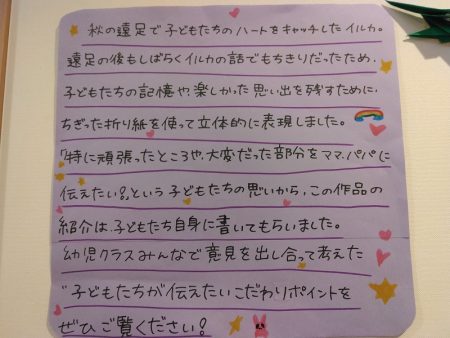 秋の遠足で子どもたちのハートをキャッチしたイルカ。
遠足の後もしばらくイルカの話でもちきりだったため、
子どもたちの記憶や、楽しかった思い出を残すために、
ちぎった折り紙を使って立体的に表現しました。
「特に頑張ったところや、大変だった部分をママ、パパに
伝えたい!」という子どもたちの思いから、この作品の
紹介は、子どもたち自身に書いてもらいました。
幼児クラスみんなで意見を出し合って考えた
"子どもたちが伝えたいこだわりポイントを
ぜひご覧ください!